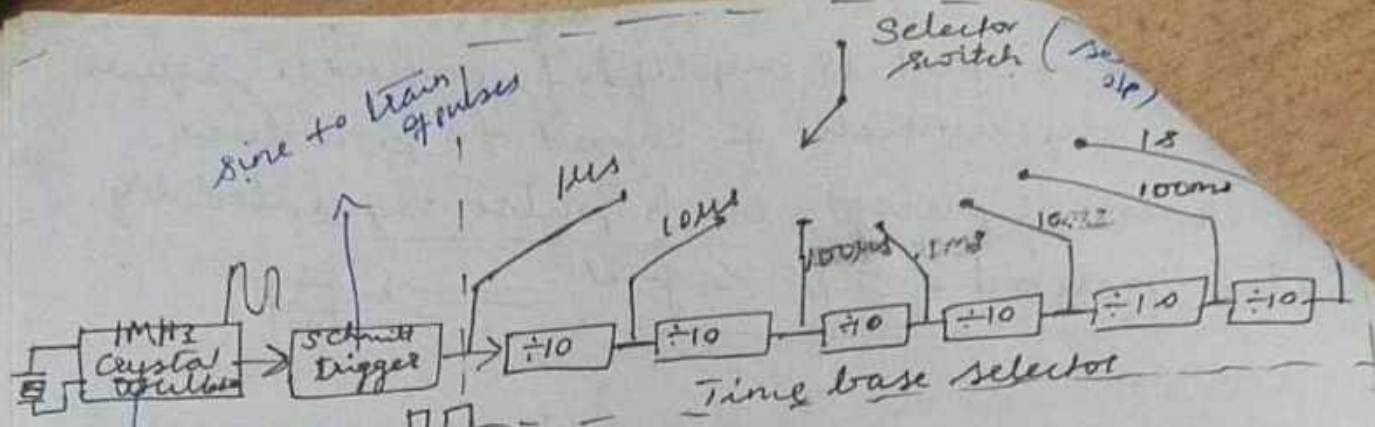 Selector
switch (
sine to train
of pulses
1μs
10μs
100μs
1ms
10ms
100ms
1s
1MHz
Crystal
Schmitt
trigger
÷10
÷10
÷10
÷10
÷10
÷10
Time base selector